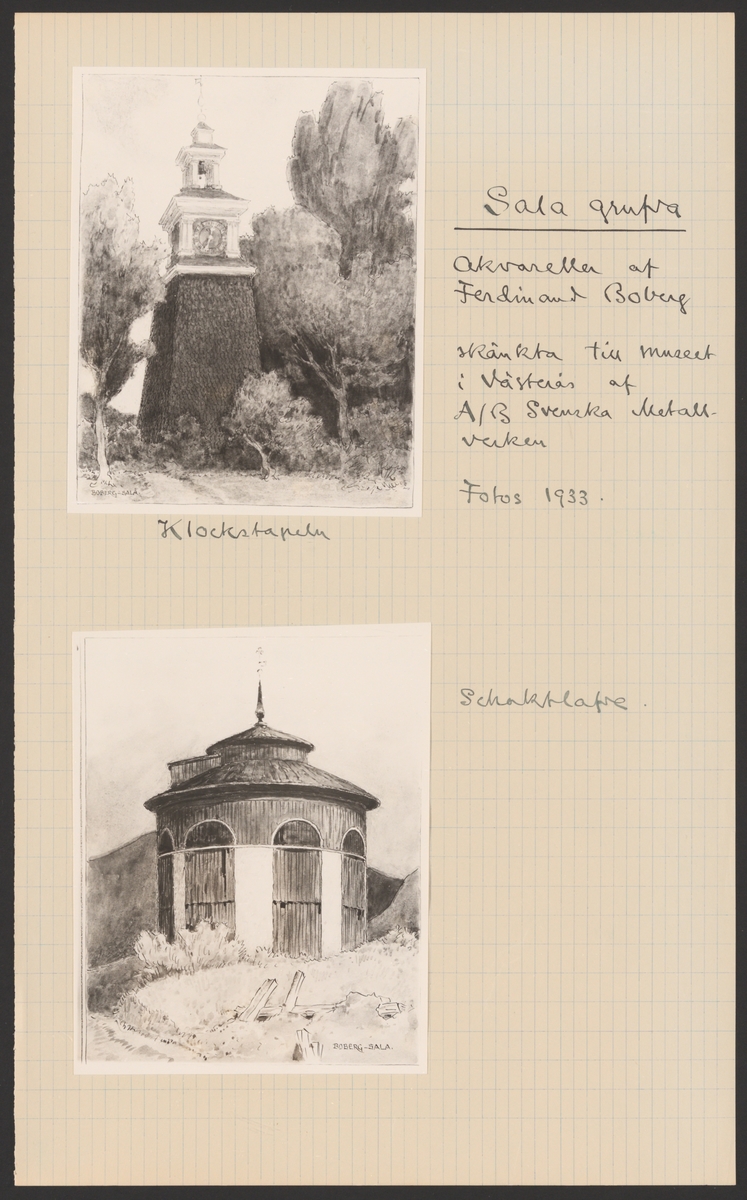 Sala grufva
Akvareller af
Ferdinand Boberg
skänkta till museet
i Västerås af
A/B Svenska Metall-
verken
Fotos 1933.
BOBERG-SALA.
Klockstapeln
Schaktlafve.
BOBERG-SALA.